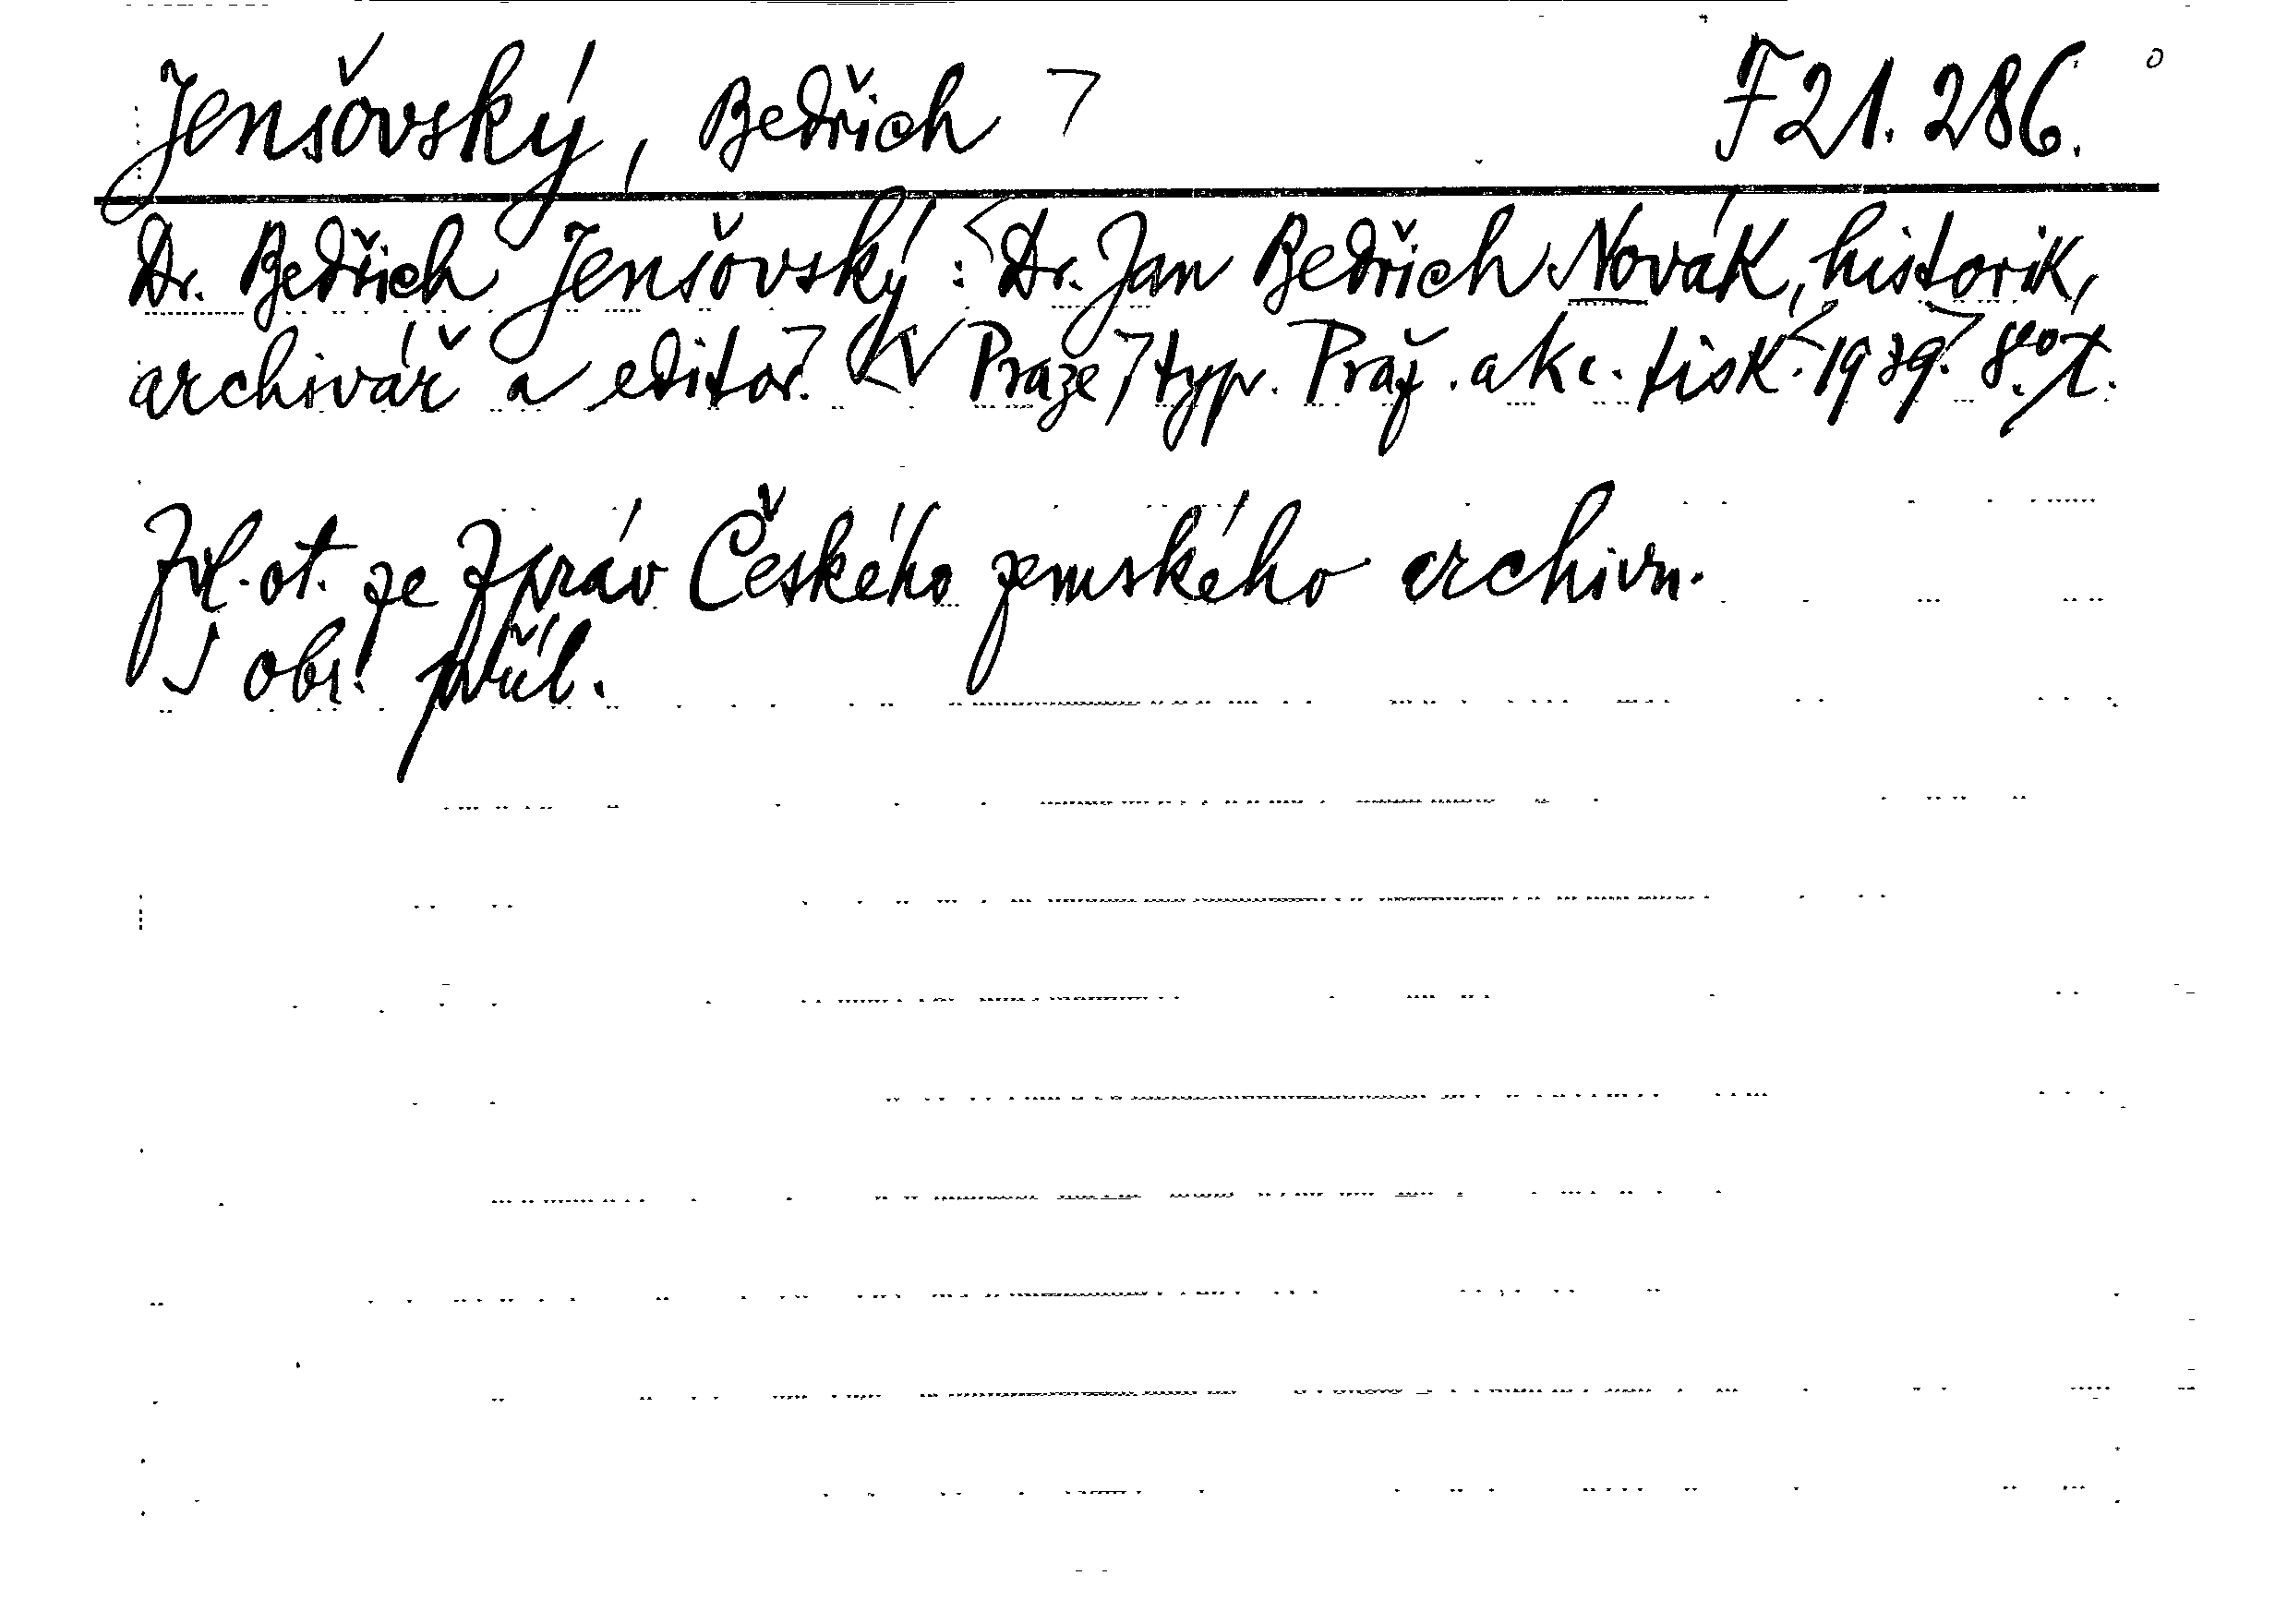 Jenšovský, Bedřich F 21.286.
Dr. Bedřich Jenšovský: Dr. Jan Bedřich Novák, historik,
archivář a editor. V Praze, typ. Praž. akc. tisk. 1939. 8°.
Zvl. ot. ze Zpráv Českého zemského archivu.
S obr. příl.